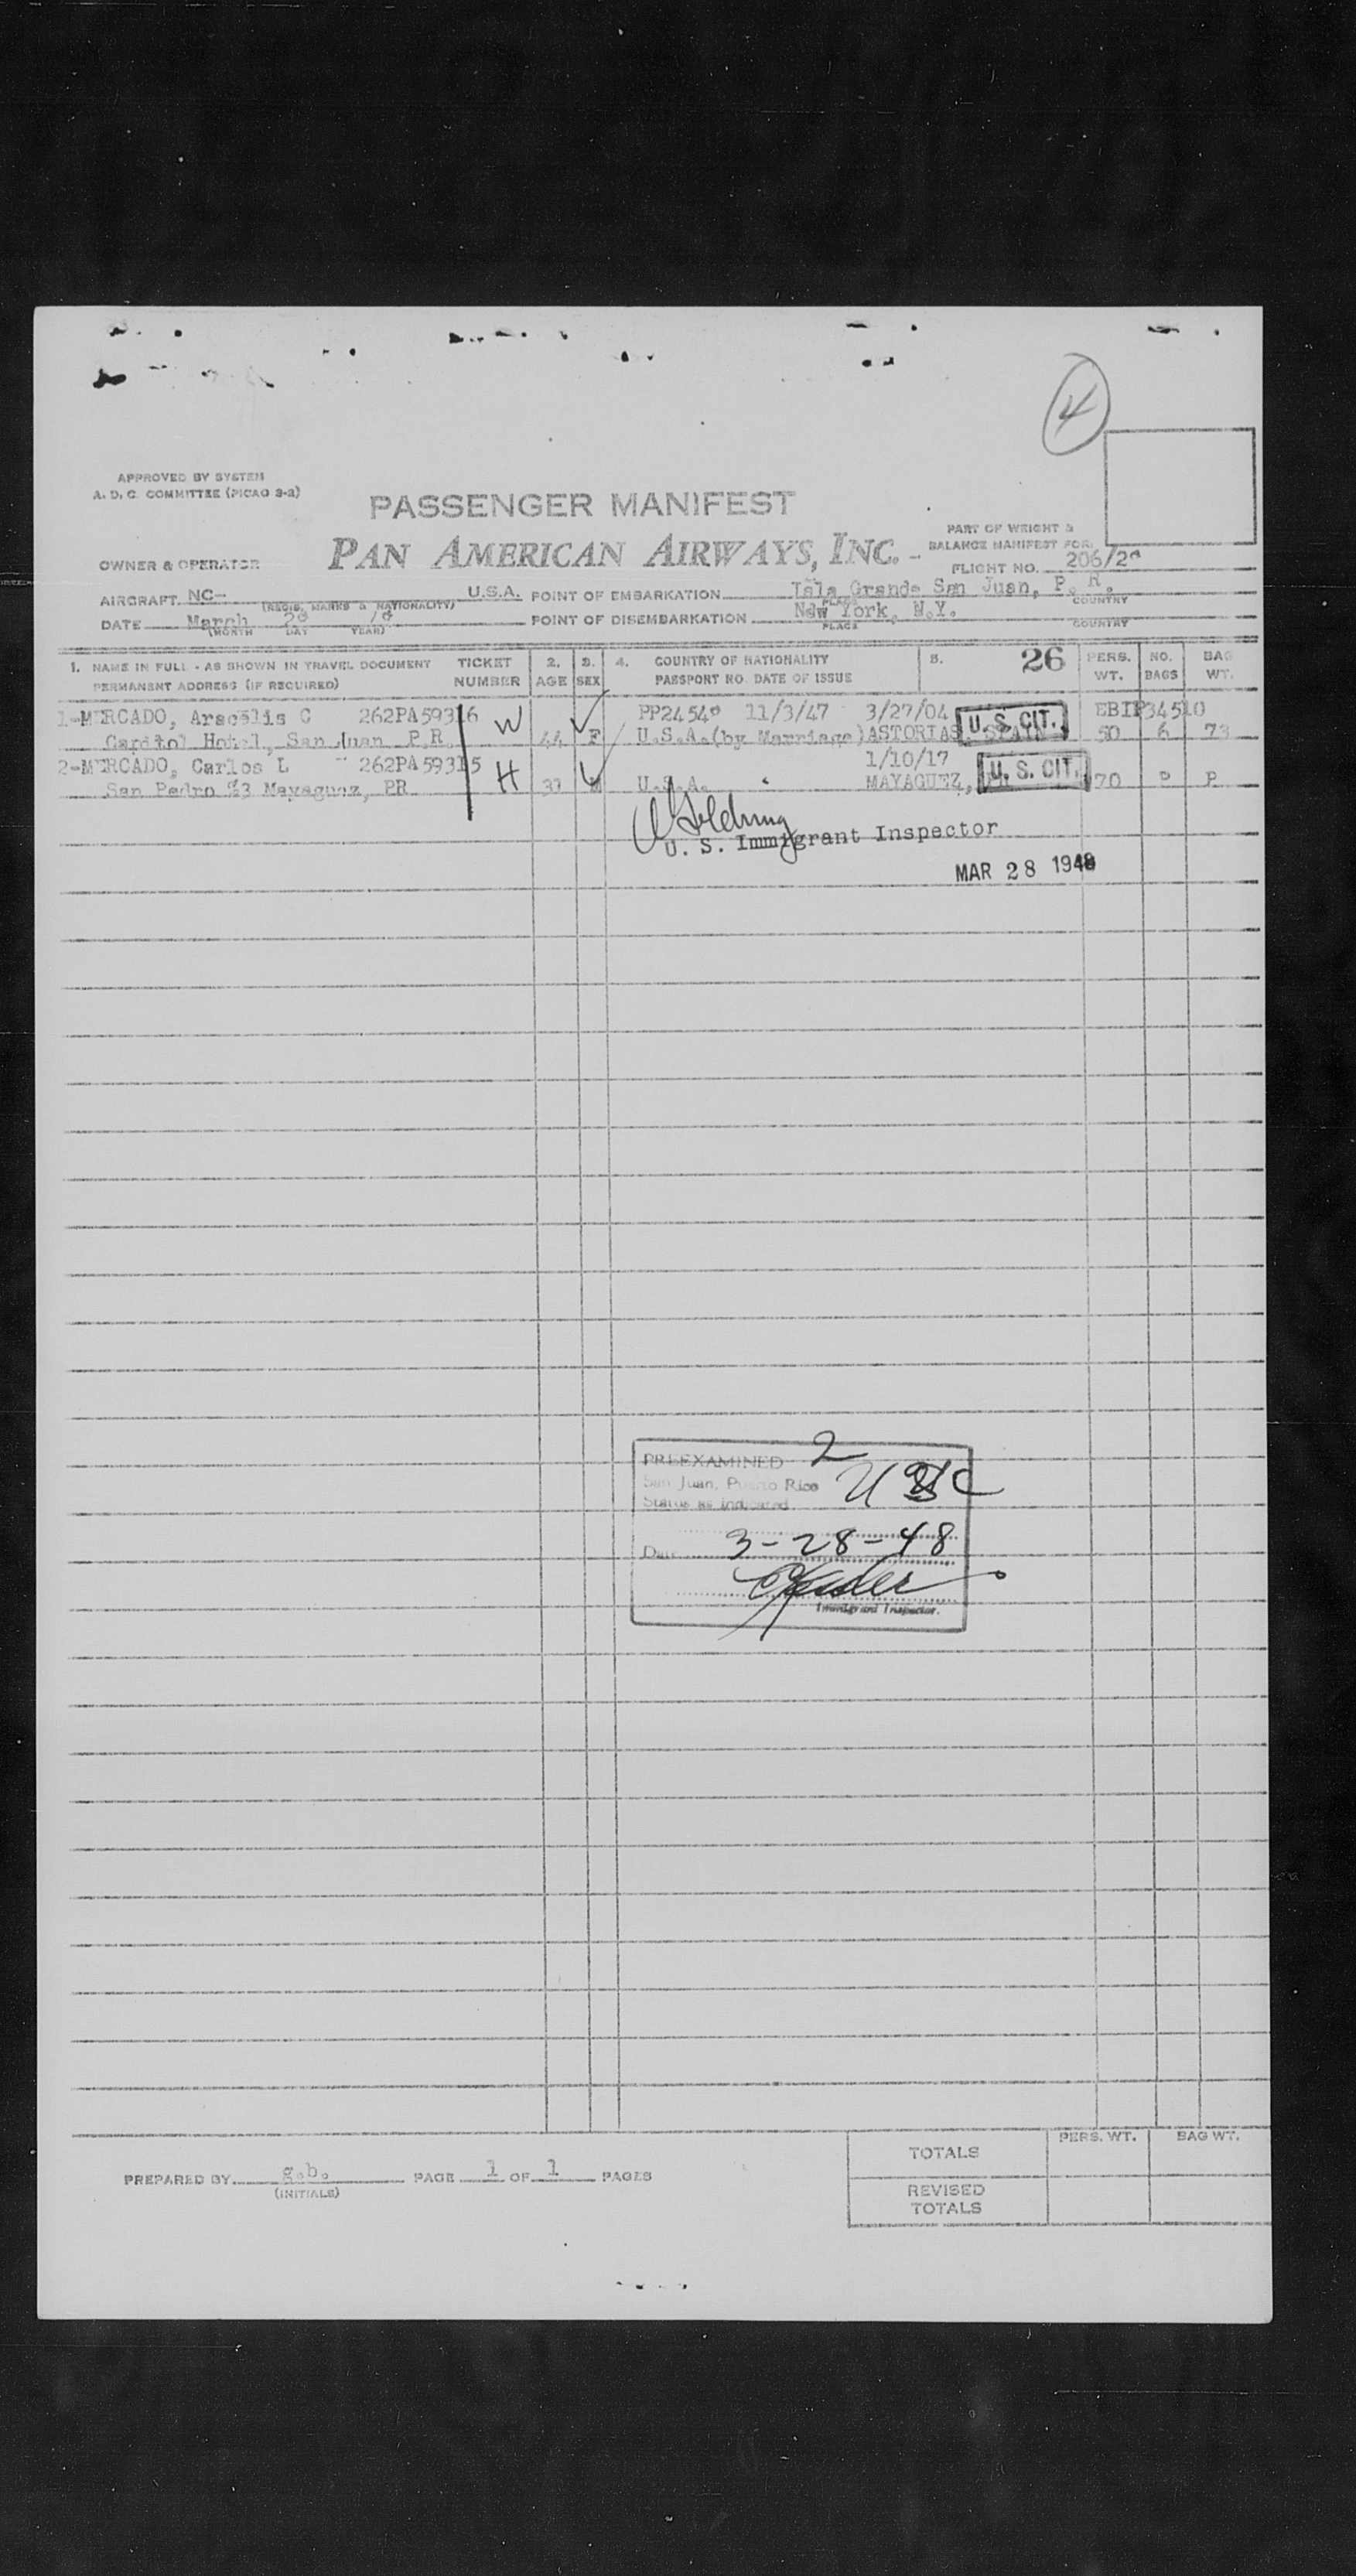 4
APPROVED BY SYSTEM
A. D. C. COMMITTEE (PICAO 3-2)
PASSENGER MANIFEST
PART OF WEIGHT &
BALANCE MANIFEST FOR:
OWNER & OPERATOR PAN AMERICAN AIRWAYS, INC.
FLIGHT NO. 206/28
AIRCRAFT NC- U.S.A. POINT OF EMBARKATION Isla Grande San Juan, P. R.
(REGIS. MARKS & NATIONALITY) PLACE COUNTRY
DATE March 28 48 POINT OF DISEMBARKATION New York, N.Y.
(MONTH DAY YEAR) PLACE COUNTRY
1. NAME IN FULL - AS SHOWN IN TRAVEL DOCUMENT TICKET 2. 3. 4. COUNTRY OF NATIONALITY 5. 26 PERS. NO. BAG
PERMANENT ADDRESS (IF REQUIRED) NUMBER AGE SEX PASSPORT NO. DATE OF ISSUE WT. BAGS WT.
1-MERCADO, Aracelis C 262PA59316 W 11/3/47 3/27/04 U. S. CIT.
Capitol Hotel, San Juan P.R. 44 F U.S.A.(by Marriage) ASTORIAS, SPAIN 50 6 73
2-MERCADO, Carlos L 262PA59315 H 1/10/17 U. S. CIT.
San Pedro 23 Mayaguez, PR U.S.A. MAYAGUEZ, 70 P P
U. S. Immigrant Inspector
MAR 28 1948
PREEXAMINED 2
San Juan, Puerto Rico USC
Status as indicated
Date 3-28-48
Immigrant Inspector.
TOTALS PERS. WT. BAG WT.
PREPARED BY g.b. PAGE 1 OF 1 PAGES
(INITIALS)
REVISED
TOTALS